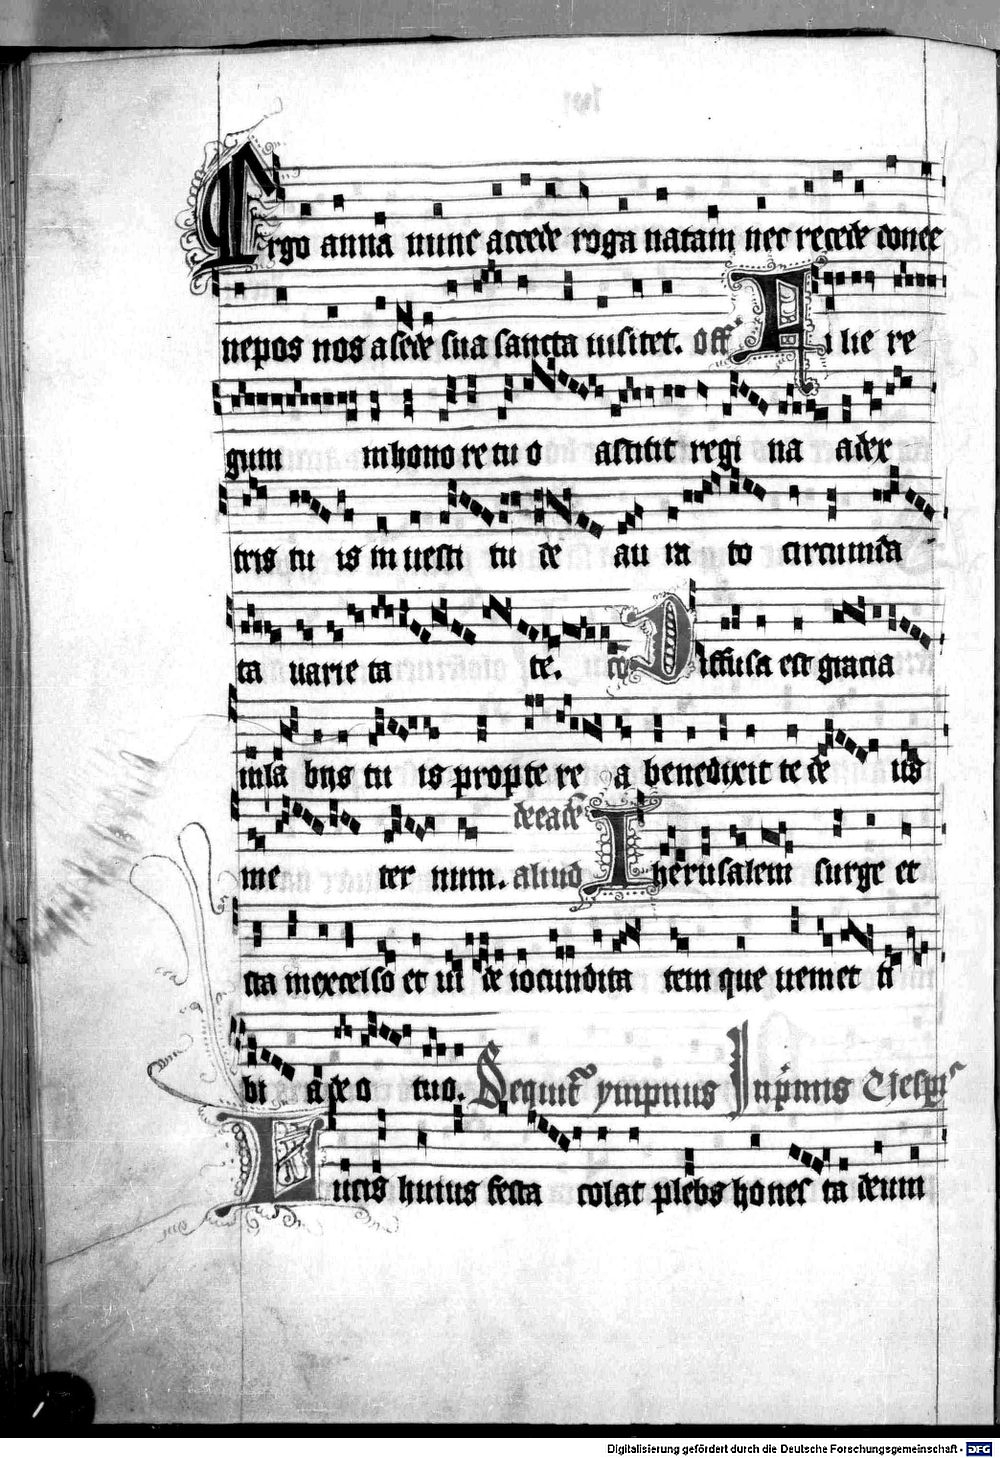 Ergo anna nunc accede roga natam nec recede donec
nepos nos a sede sua sancta uisitet. Off Filie re
gum in honore tuo astitit regi na a dex
tris tu is in uesti tu de au ra to circumda
ta uarie ta te. co Diffusa est gracia
in la biis tu is propte re a benedixit te de us
de eadē
in e ter num. aliud Iherusalem surge et
sta in excelso et ui de iocundita tem que ueniet ti
bi a deo tuo. Sequitur ympnus In primis Vesperis
Lucis huius festa colat plebs hones ta deum
Digitalisierung gefördert durch die Deutsche Forschungsgemeinschaft - DFG